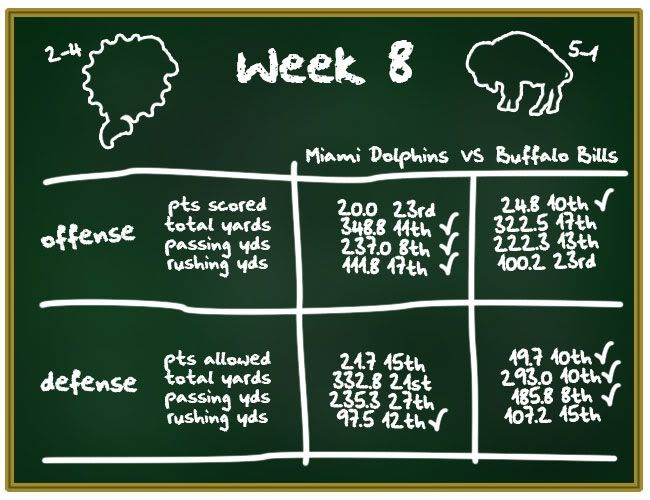 2-4
Week 8
5-1
Miami Dolphins vs Buffalo Bills
offense
pts scored 20.0 23rd 24.8 10th
total yards 348.8 11th 322.5 17th
passing yds 237.0 8th 222.3 13th
rushing yds 111.8 17th 100.2 23rd
defense
pts allowed 21.7 15th 19.7 10th
total yards 332.8 21st 293.0 10th
passing yds 235.3 27th 185.8 8th
rushing yds 97.5 12th 107.2 15th